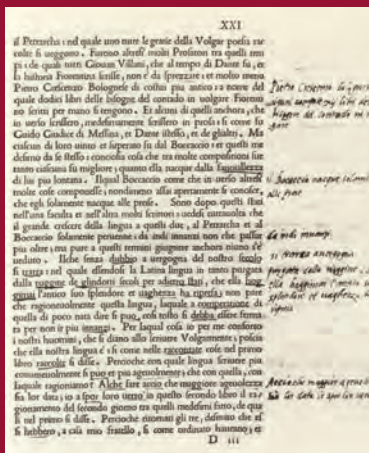 XXI
il Petrarcha: nel quale uno tutte le gratie della Volgar poesia rac
colte si ueggono. Furono altresi molti Prosatori tra quelli tem
pi: de quali tutti Giouan Villani, che al tempo di Dante fu, et
la historia Fiorentina scrisse, non è da sprezzare: et molto meno
Pietro Crescenzo Bolognese di costui piu antico: a nome del
quale dodici libri delle bisogne del contado in uolgare Fioren
no scritti per mano si tengono. Et alcuni di quelli anchora, che
in uerso scrissero, medesimamente scrissero in prosa: si come fu
Guido Giudice di Messina, et Dante istesso, et de glialtri. Ma
ciascun di loro uinto et superato fu dal Boccaccio: et questi me
desimo da se stesso: conciosia cosa che tra molte compositioni sue
tanto ciascuna fu migliore; quanto ella nacque dalla fanciullezza
di lui piu lontana. Ilqual Boccaccio come che in uerso altresi
molte cose componesse; nondimeno assai apertamente si conosce,
che egli solamente nacque alle prose. Sono dopo questi stati
nell'una faculta et nell'altra molti scrittori: uedesi tuttauolta che
il grande crescere della lingua a questi due, al Petrarcha et al
Boccaccio solamente peruenne: da indi innanzi non che passar
piu oltre; ma pure a questi termini giugnere anchora niuno s'è
ueduto. Ilche senza dubbio a uergogna del nostro secolo
si trarra: nel quale essendosi la Latina lingua in tanto purgata
dalla ruggine de glindotti secoli per adietro stati, che ella hog
gimai l'antico suo splendore et uaghezza ha ripresa; non pare
che ragioneuolmente questa lingua, laquale a comperatione di
quella di poco nata dire si puo, cosi tosto si debba essere ferma
ta per non ir piu innanzi. Per laqual cosa io per me conforto
i nostri huomini, che si diano allo scriuere Volgarmente; poscia
che ella nostra lingua è: si come nelle raccontate cose nel primo
libro raccolte si disse. Percioche con quale lingua scriuere piu
conueneuolmente si puo et piu ageuolmente; che con quella, con
laquale ragioniamo? Alche fare accio che maggiore ageuolezza
sia lor data; io a spor loro uerro in questo secondo libro il ra-
gionamento del secondo giorno tra quelli medesimi fatto, de qua
li nel primo si disse. Percioche ritornati gli tre, desinato che
si hebbero, a casa mio fratello, si come ordinato haueano; et
D iii
Boccaccio nacque solamente
alle prose
da indi innanzi